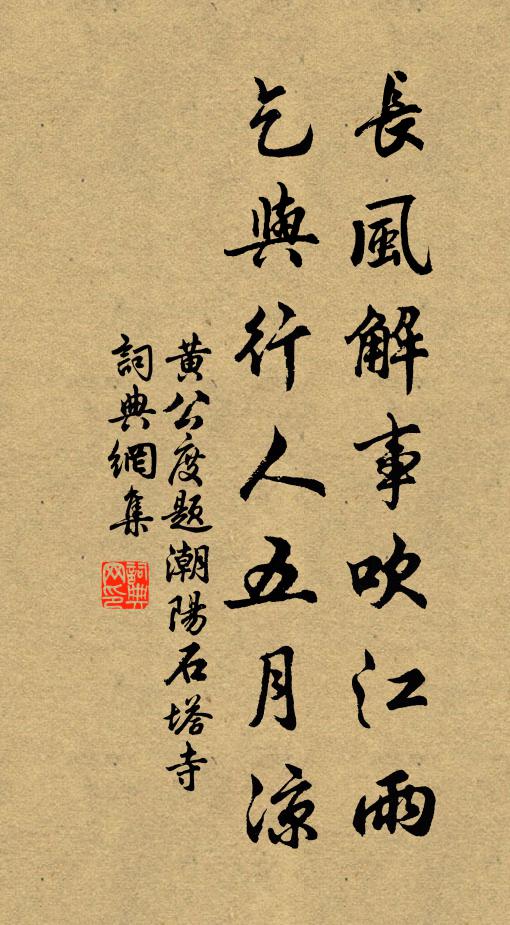 長風解事吹江雨
乞與行人五月涼
黃公度題潮陽石塔寺
詞典網集
詞典網印